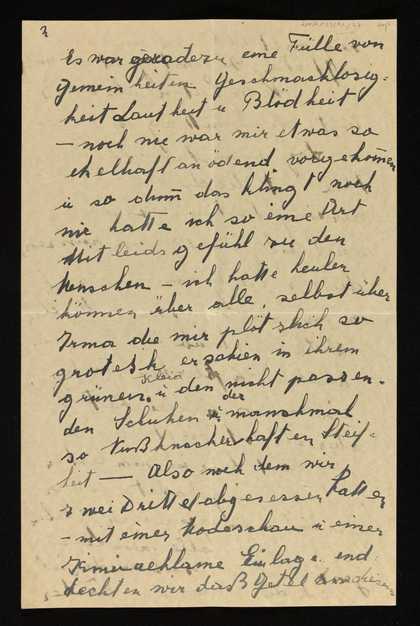 3
Es war geradezu eine Fülle von
Gemeinheiten Geschmacklosig-
keit Lautheit u Blödheit
– noch nie war mir etwas so
ekelhaft anödend vorgekommen
u so dumm das klingt noch
nie hatte ich so eine Art
Mitleidsgefühl zu den
Menschen – ich hatte heulen
können über alle, selbst über
Irma die mir plötzlich so
grotesk erschien in ihrem
grünen Kleid u den nicht passen-
den Schuhen u der manchmal
so Nußknackerhaften Steif-
heit — Also nach dem wir
zwei Drittel abgesessen hatten
– mit einer Modeschau u einer
Einlage ent-
deckten wir daß